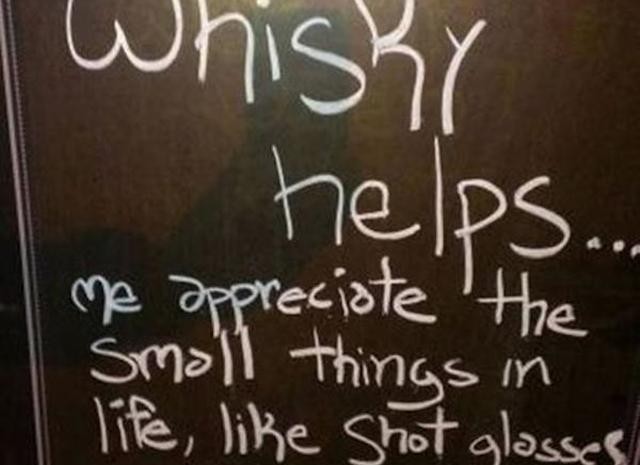 Whisky
helps...
me appreciate the
small things in
life, like shot glasses